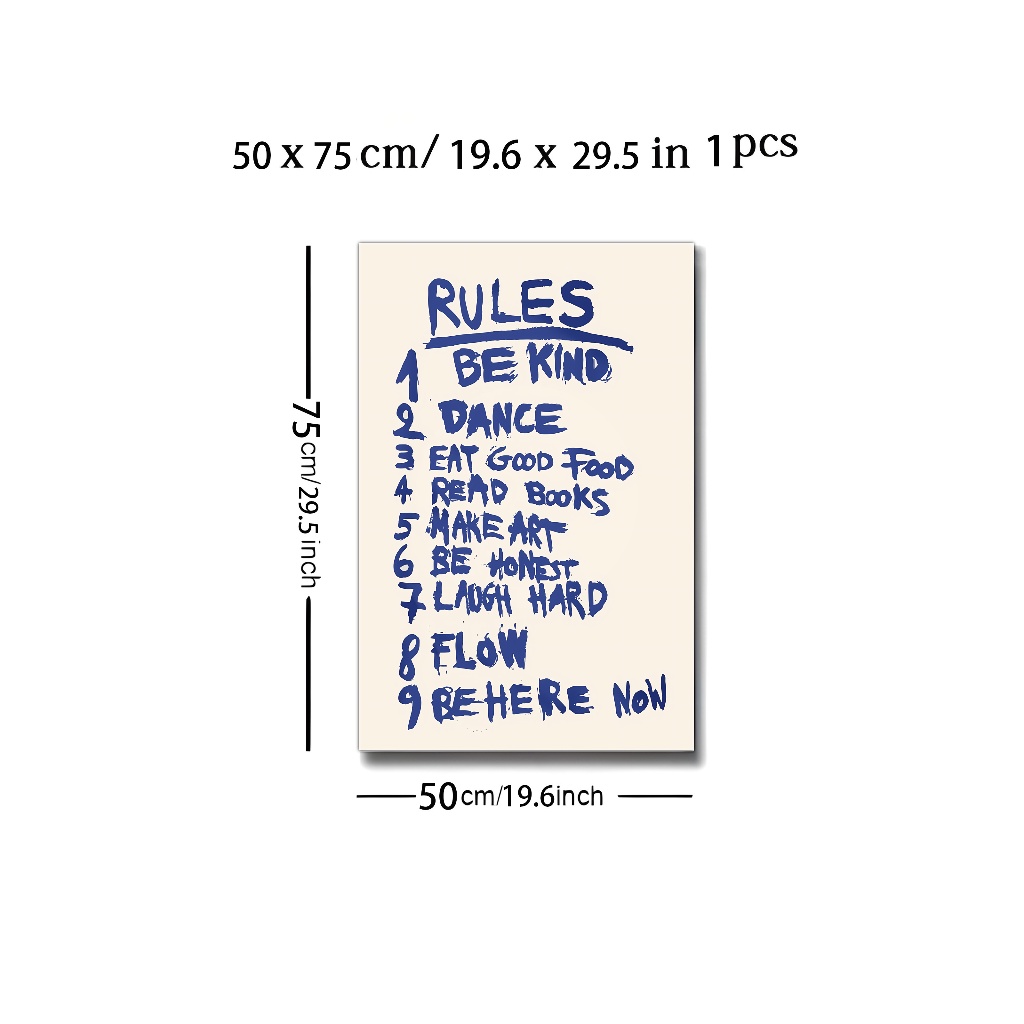 50 x 75 cm/ 19.6 x 29.5 in 1 pcs
RULES
1 BE KIND
2 DANCE
3 EAT GOOD FOOD
4 READ BOOKS
5 MAKE ART
6 BE HONEST
7 LAUGH HARD
8 FLOW
9 BE HERE NOW
75cm/29.5 inch
50cm/19.6inch